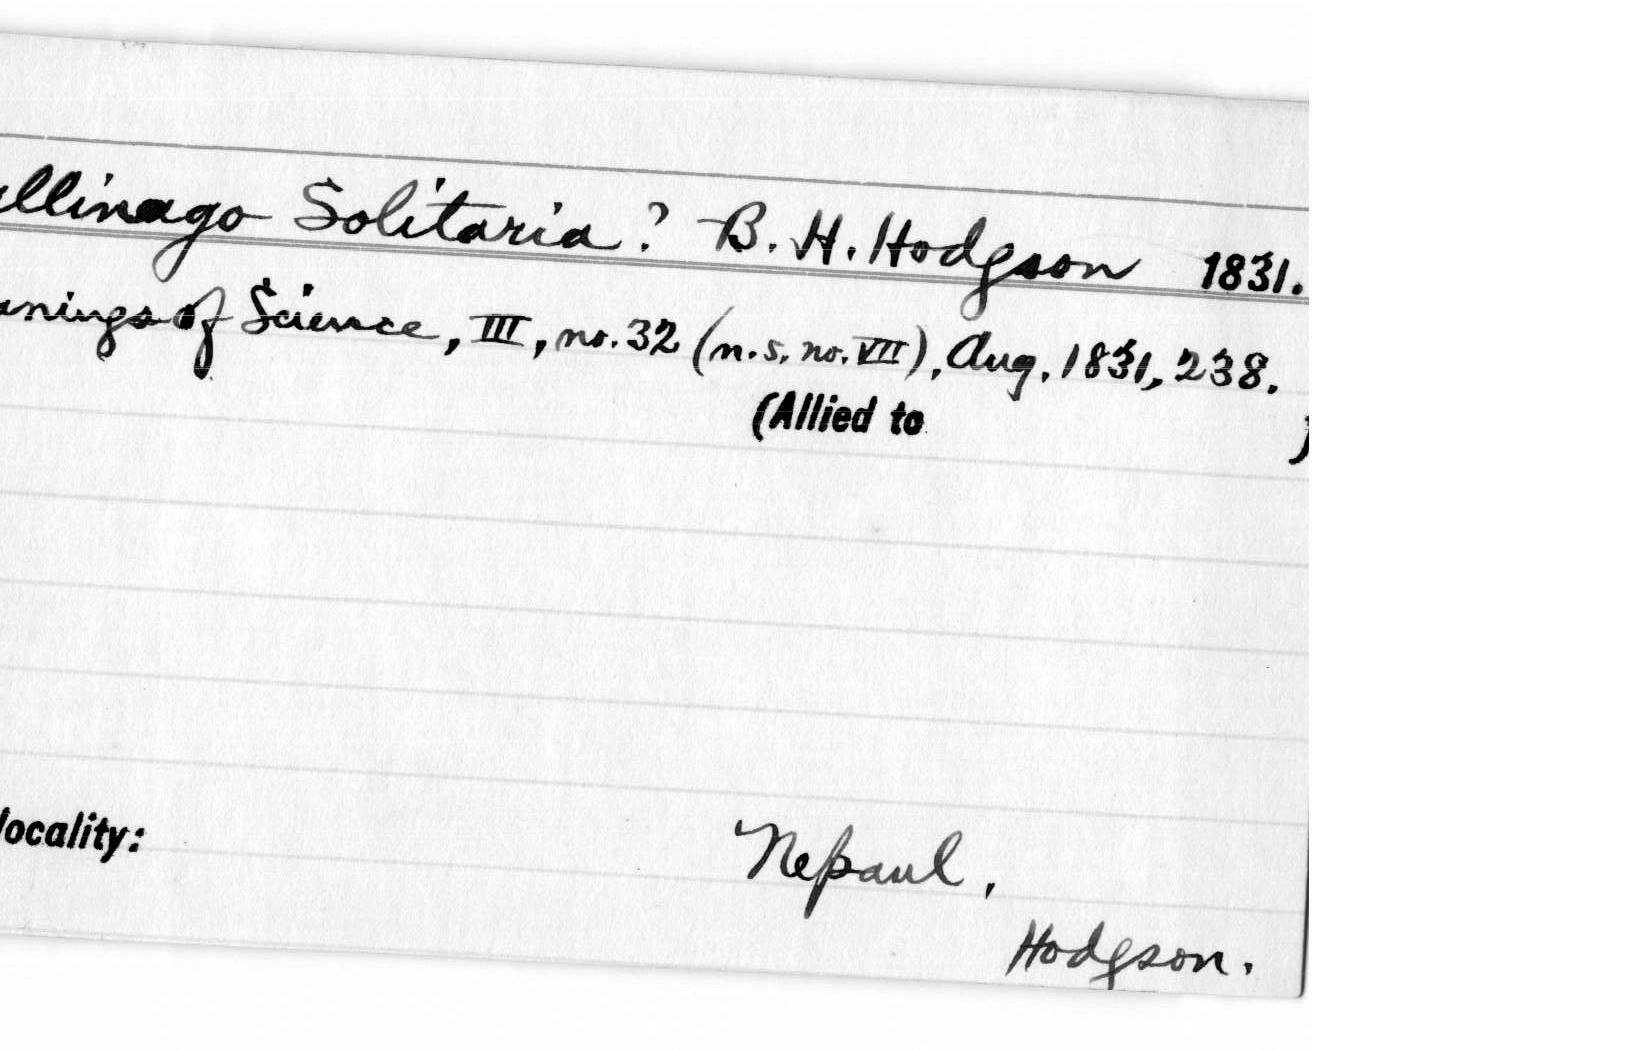 allinago Solitaria? B. H. Hodgson 1831.
anings of Science, III, no. 32 (n.s. no. VII), Aug. 1831, 238.
(Allied to )
locality: Nepaul,
Hodgson.